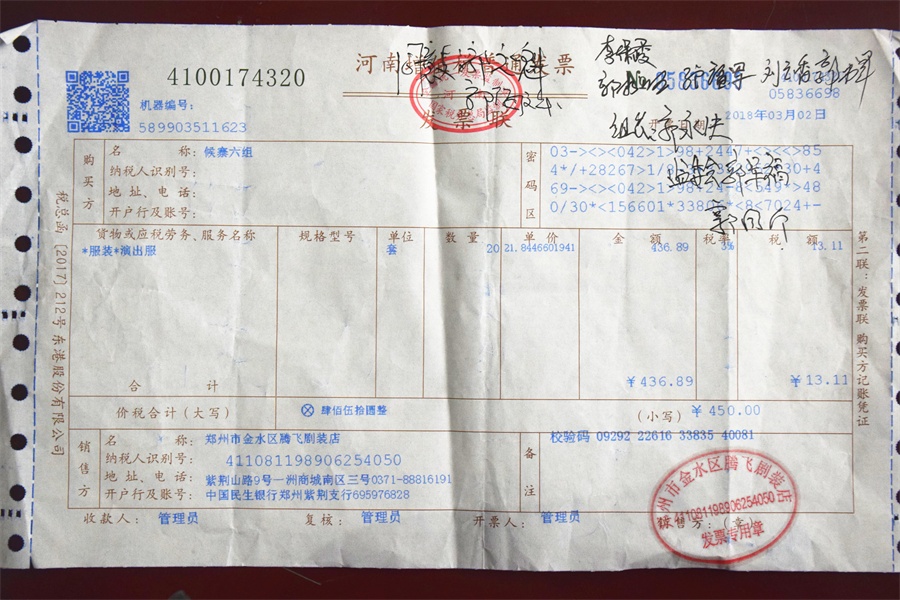 4100174320
发票联
05836698
机器编号:
589903511623
2018年03月02日
购买方
名 称: 候寨六组
纳税人识别号:
地 址、电 话:
开户行及账号:
密码区
货物或应税劳务、服务名称 规格型号 单位 数 量 单 价 金 额 税率 税 额
*服装*演出服 套 20 21.8446601941 436.89 3% 13.11
合 计 ¥436.89 ¥13.11
价税合计(大写) ⊗ 肆佰伍拾圆整 (小写) ¥ 450.00
销售方
名 称: 郑州市金水区腾飞剧装店
纳税人识别号: 411081198906254050
地 址、电 话: 紫荆山路9号一洲商城南区三号0371-88816191
开户行及账号: 中国民生银行郑州紫荆支行695976828
备注
校验码 09292 22616 33835 40081
收款人: 管理员 复核: 管理员 开票人: 管理员 销售方:(章)
税总函〔2017〕212号东港股份有限公司
第二联:发票联 购买方记账凭证
郑州市金水区腾飞剧装店
411081198906254050
发票专用章